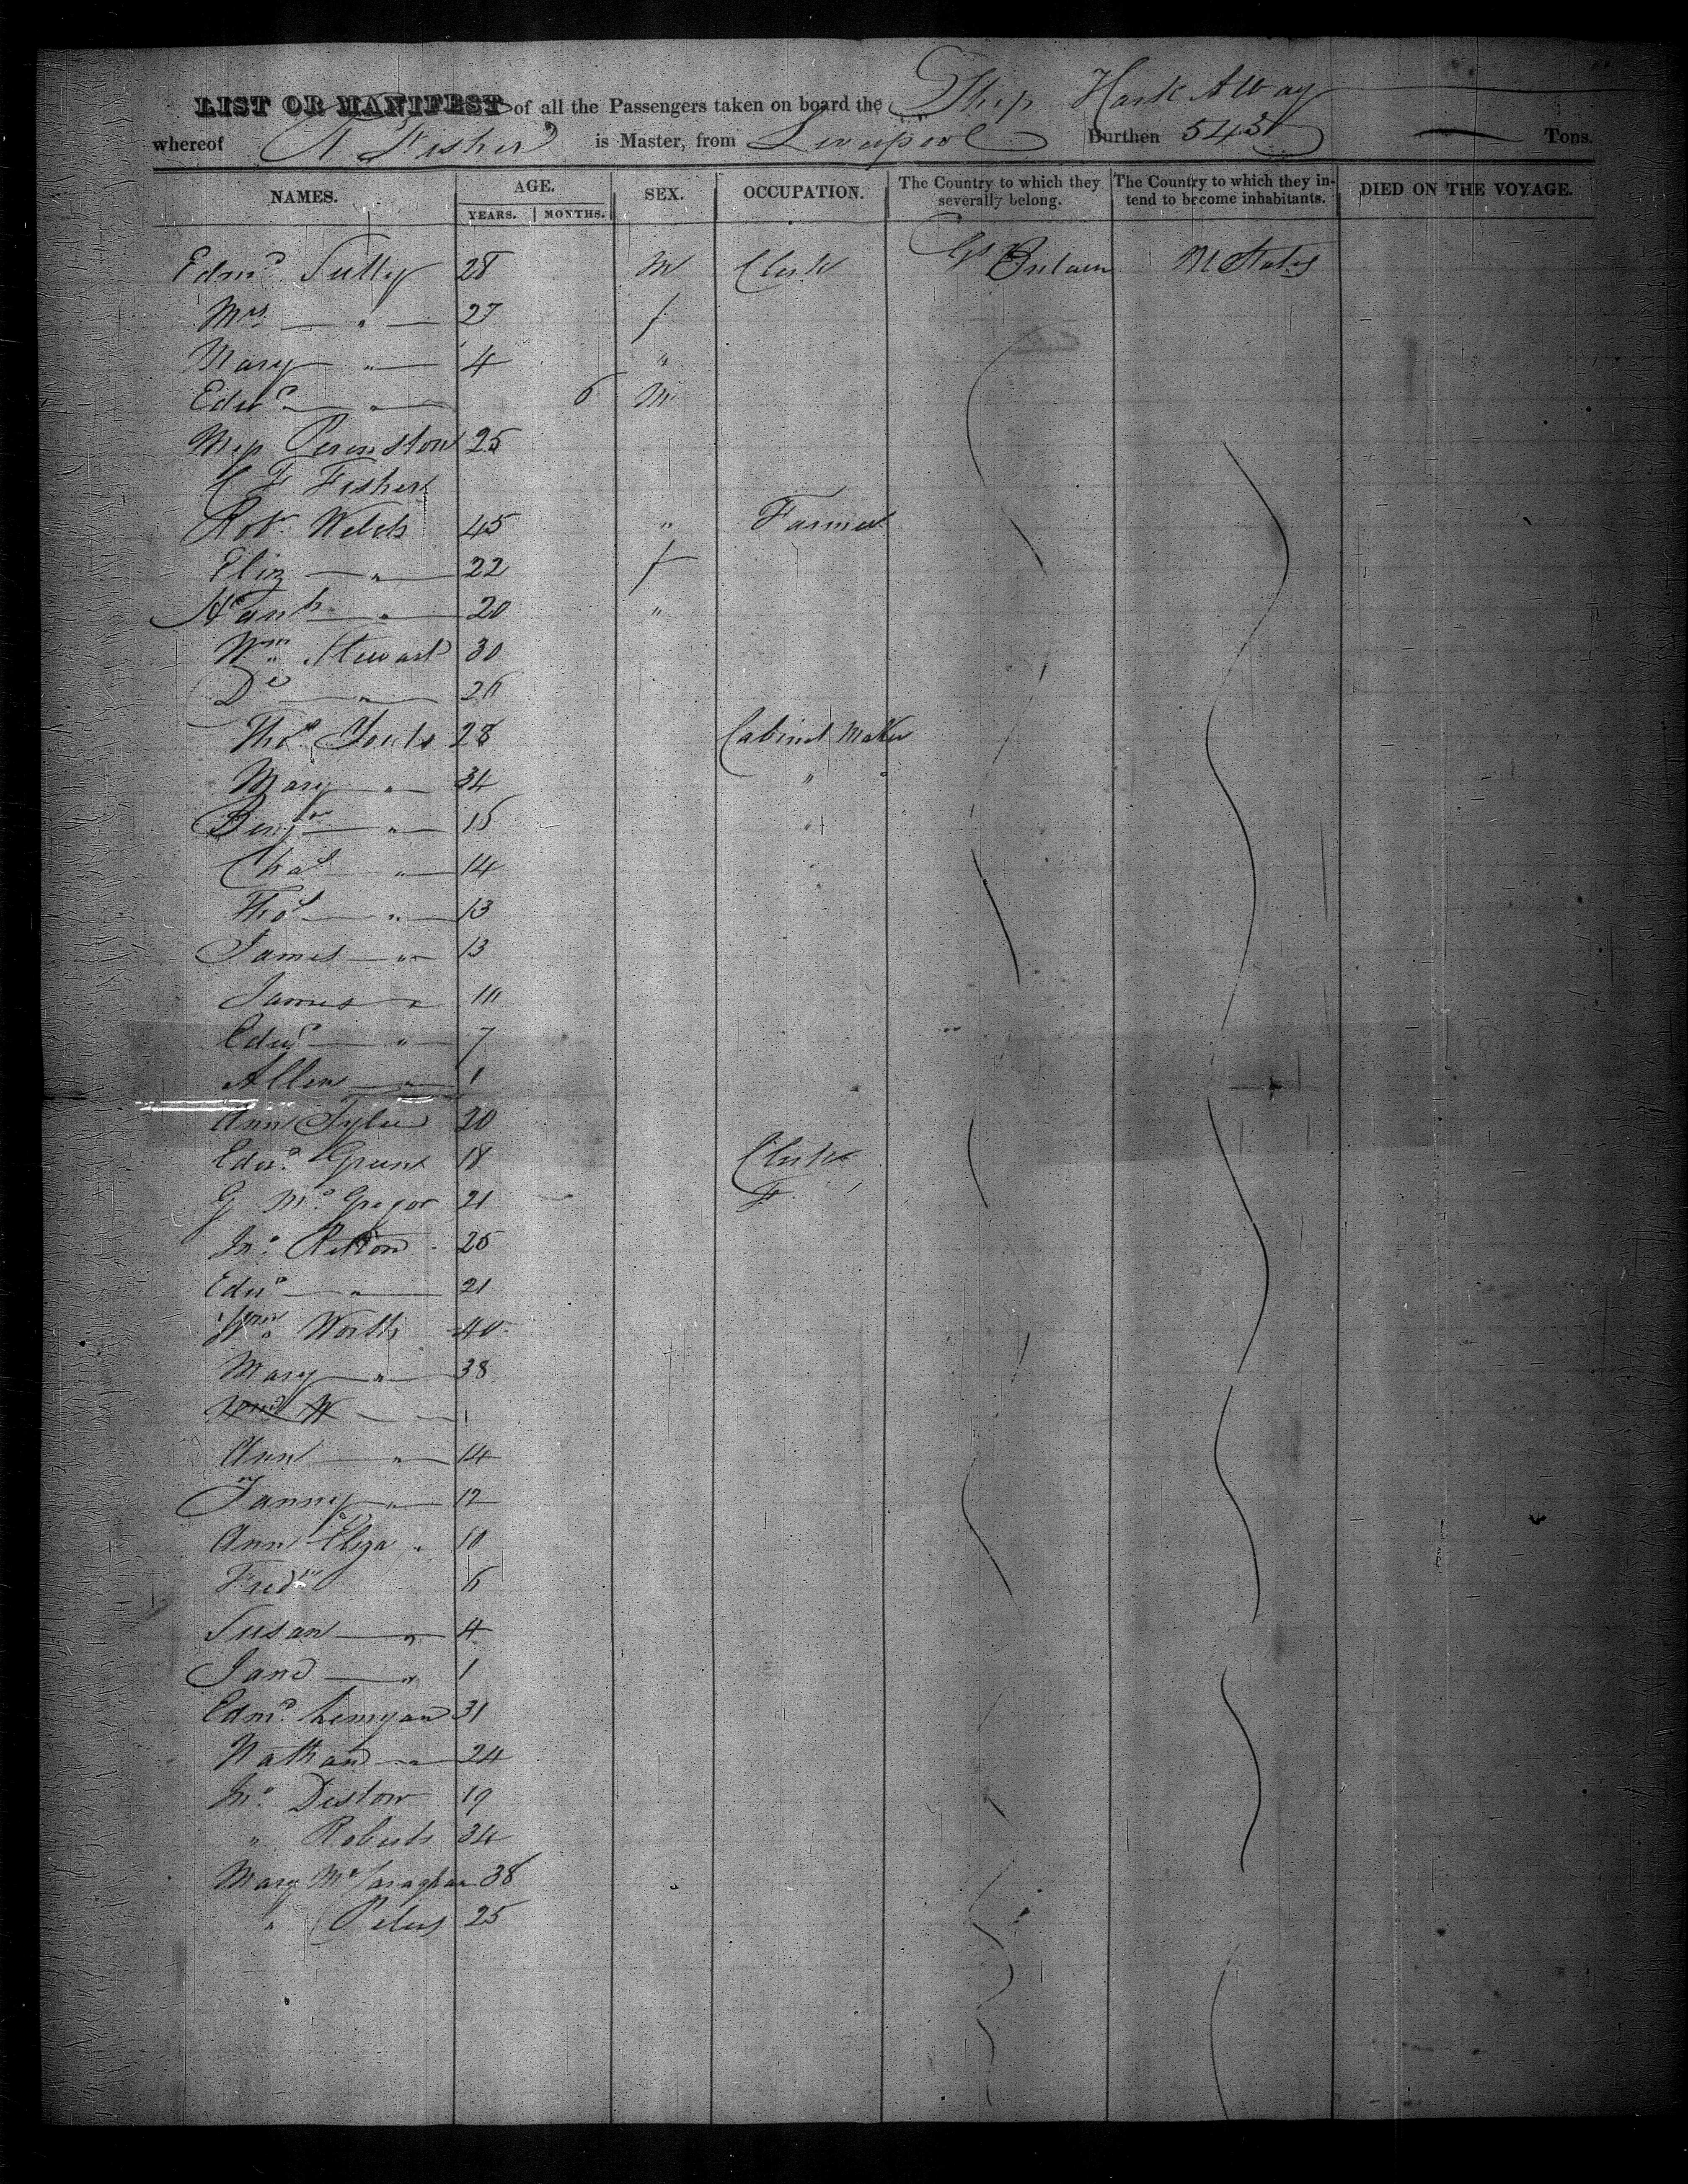 LIST OR MANIFEST of all the Passengers taken on board the Ship Hark Away
whereof A Fisher is Master, from Liverpool Burthen 543 Tons.
NAMES. AGE. SEX. OCCUPATION. The Country to which they severally belong. The Country to which they intend to become inhabitants. DIED ON THE VOYAGE.
YEARS. MONTHS.
Edmd Sully 28 M Clerk Gt Britain U States
Mrs — " — 27 f
Mary " 4 "
Edwd " 6 M
Miss 25
C F Fisher
Robt Welch 45 " Farmer
Eliz — " 22 f
Hanh " 20 "
Wm Stewart 30
Do " 26
Thos 28 Cabinet Maker
Mary " 34 "
Benjn " 15 "
Chas " 14
Thos " 13
James — " 13
James " 10
Edwd " 7
Allen " 1
Ann Tyler 20
Edwd Green 18 Clerk
G McGregor 21 F
Jno 25
Edwd — " 21
Wm Worth 40
Mary " 38
Ann " 14
Fanny " 12
Ann Eliza " 10
Fredk 6
Susan — " 4
Jane — " 1
Edmd 31
Nathan — " 24
Jno 19
" Roberts 34
Mary 38
" Peters 25